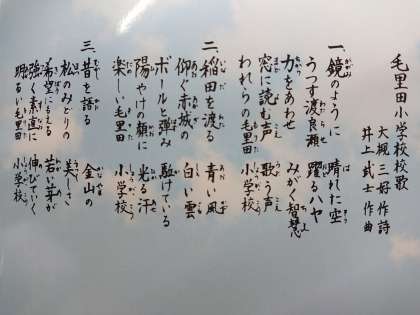 毛里田小学校校歌
大槻三好作詩
井上武士作曲
一、鏡のように 晴れた空
うつす渡良瀬 躍るハヤ
力をあわせ みがく智慧
窓に読む声 歌う声
われらの毛里田 小学校
二、稲田を渡る 青い風
仰ぐ赤城の 白い雲
ボールと弾み 駆けている
陽やけの頬に 光る汗
楽しい毛里田 小学校
三、昔を語る 金山の
松のみどりの 美しさ
希望にもえる 若い芽が
強く素直に 伸びていく
明るい毛里田 小学校